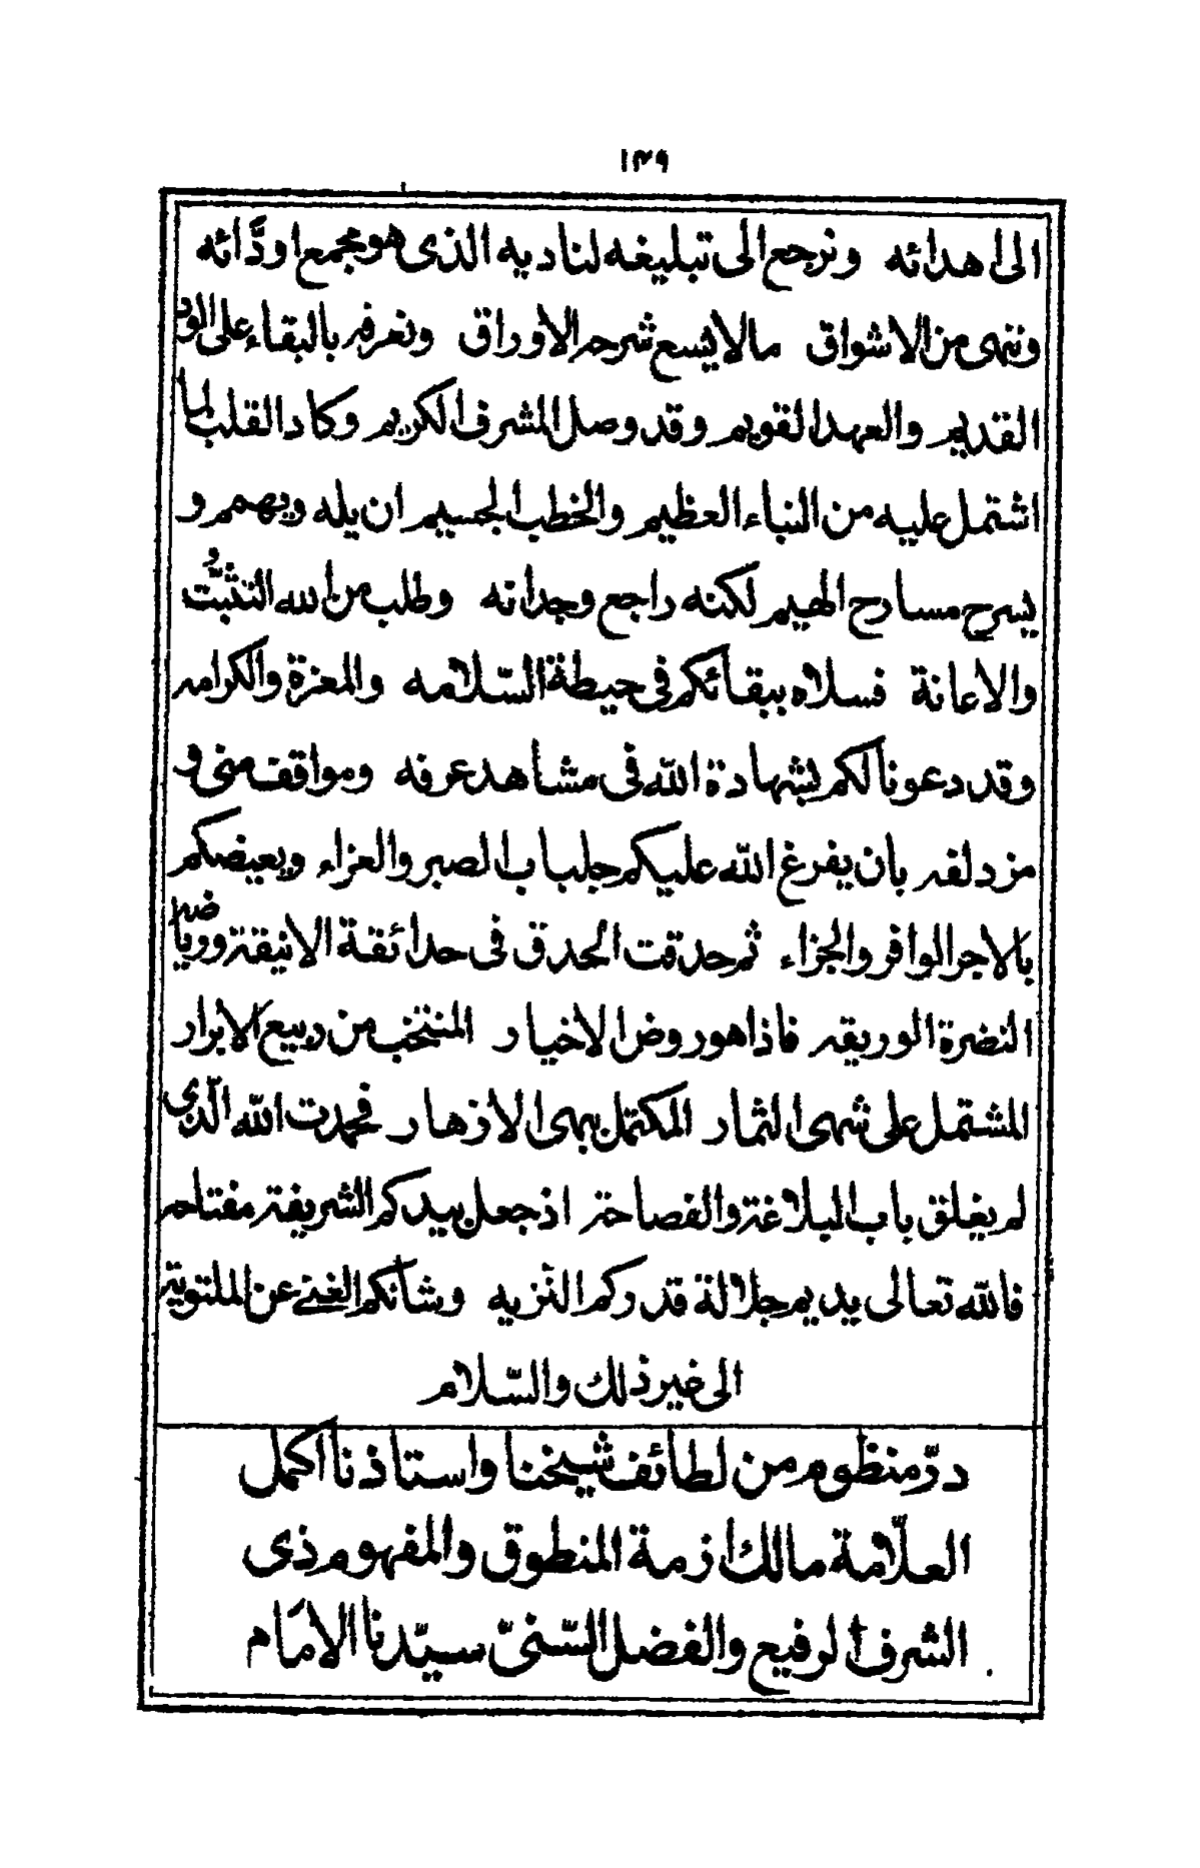 ١٣٩
الى اهدائه ونرجع الى تبليغه لناديه الذى هو مجمع اودّائه
وننهى من الاشواق مالا يسع شرحه الاوراق ونعرفه بالبقاء على الود
القديم والعهد القويم وقد وصل المشرف الكريم وكاد القلب لما
اشتمل عليه من النباء العظيم والخطب الجسيم ان يله ويهمم و
يسرح مسارح الهيم لكنه راجع وجدانه وطلب من الله التثبُّت
والاعانة فسلاه ببقائكم فى حيطة السّلامه والمعزة والكرامه
وقد دعونا لكم بشهادة الله فى مشاهد عرفه ومواقف منى و
مزدلفه بان يفرغ الله عليكم جلباب الصبر والعزاء ويعيضكم
بالاجر الوافر والجزاء ثم حدقت الحدق فى حدائقة الانيقة ورياضه
النضرة الوريقه فاذا هو روض الاخيار المنتخب من ربيع الابرار
المشتمل على شهى الثمار المكتمل بهى الازهار فحمدت الله الّذى
لم يغلق باب البلاغة والفصاحة اذ جعل بيدكم الشريفة مفتاحه
فالله تعالى يديم جلالة قدركم النزيه وشأنكم الغنى عن الملتوية
الى غير ذلك والسّلام
درّ منظوم من لطائف شيخنا واستاذنا اكمل
العلّامة مالك ازمة المنطوق والمفهوم ذى
الشرف الرفيع والفضل السّنىّ سيّدنا الامام